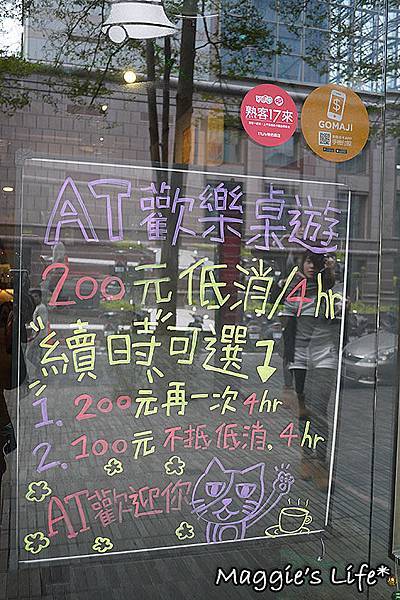 熟客17來
GOMAJI
AT歡樂桌遊
200元低消/4hr
續時可選
1. 200元再一次4hr
2. 100元不抵低消,4hr
AT歡迎你
Maggie's Life*